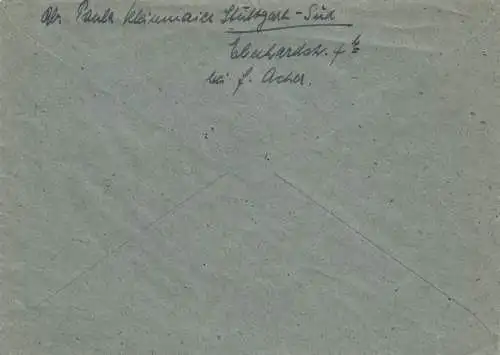 Abs. Paula Kleinmaier Stuttgart-Süd
Eberhardstr. 4
bei F. Acher.